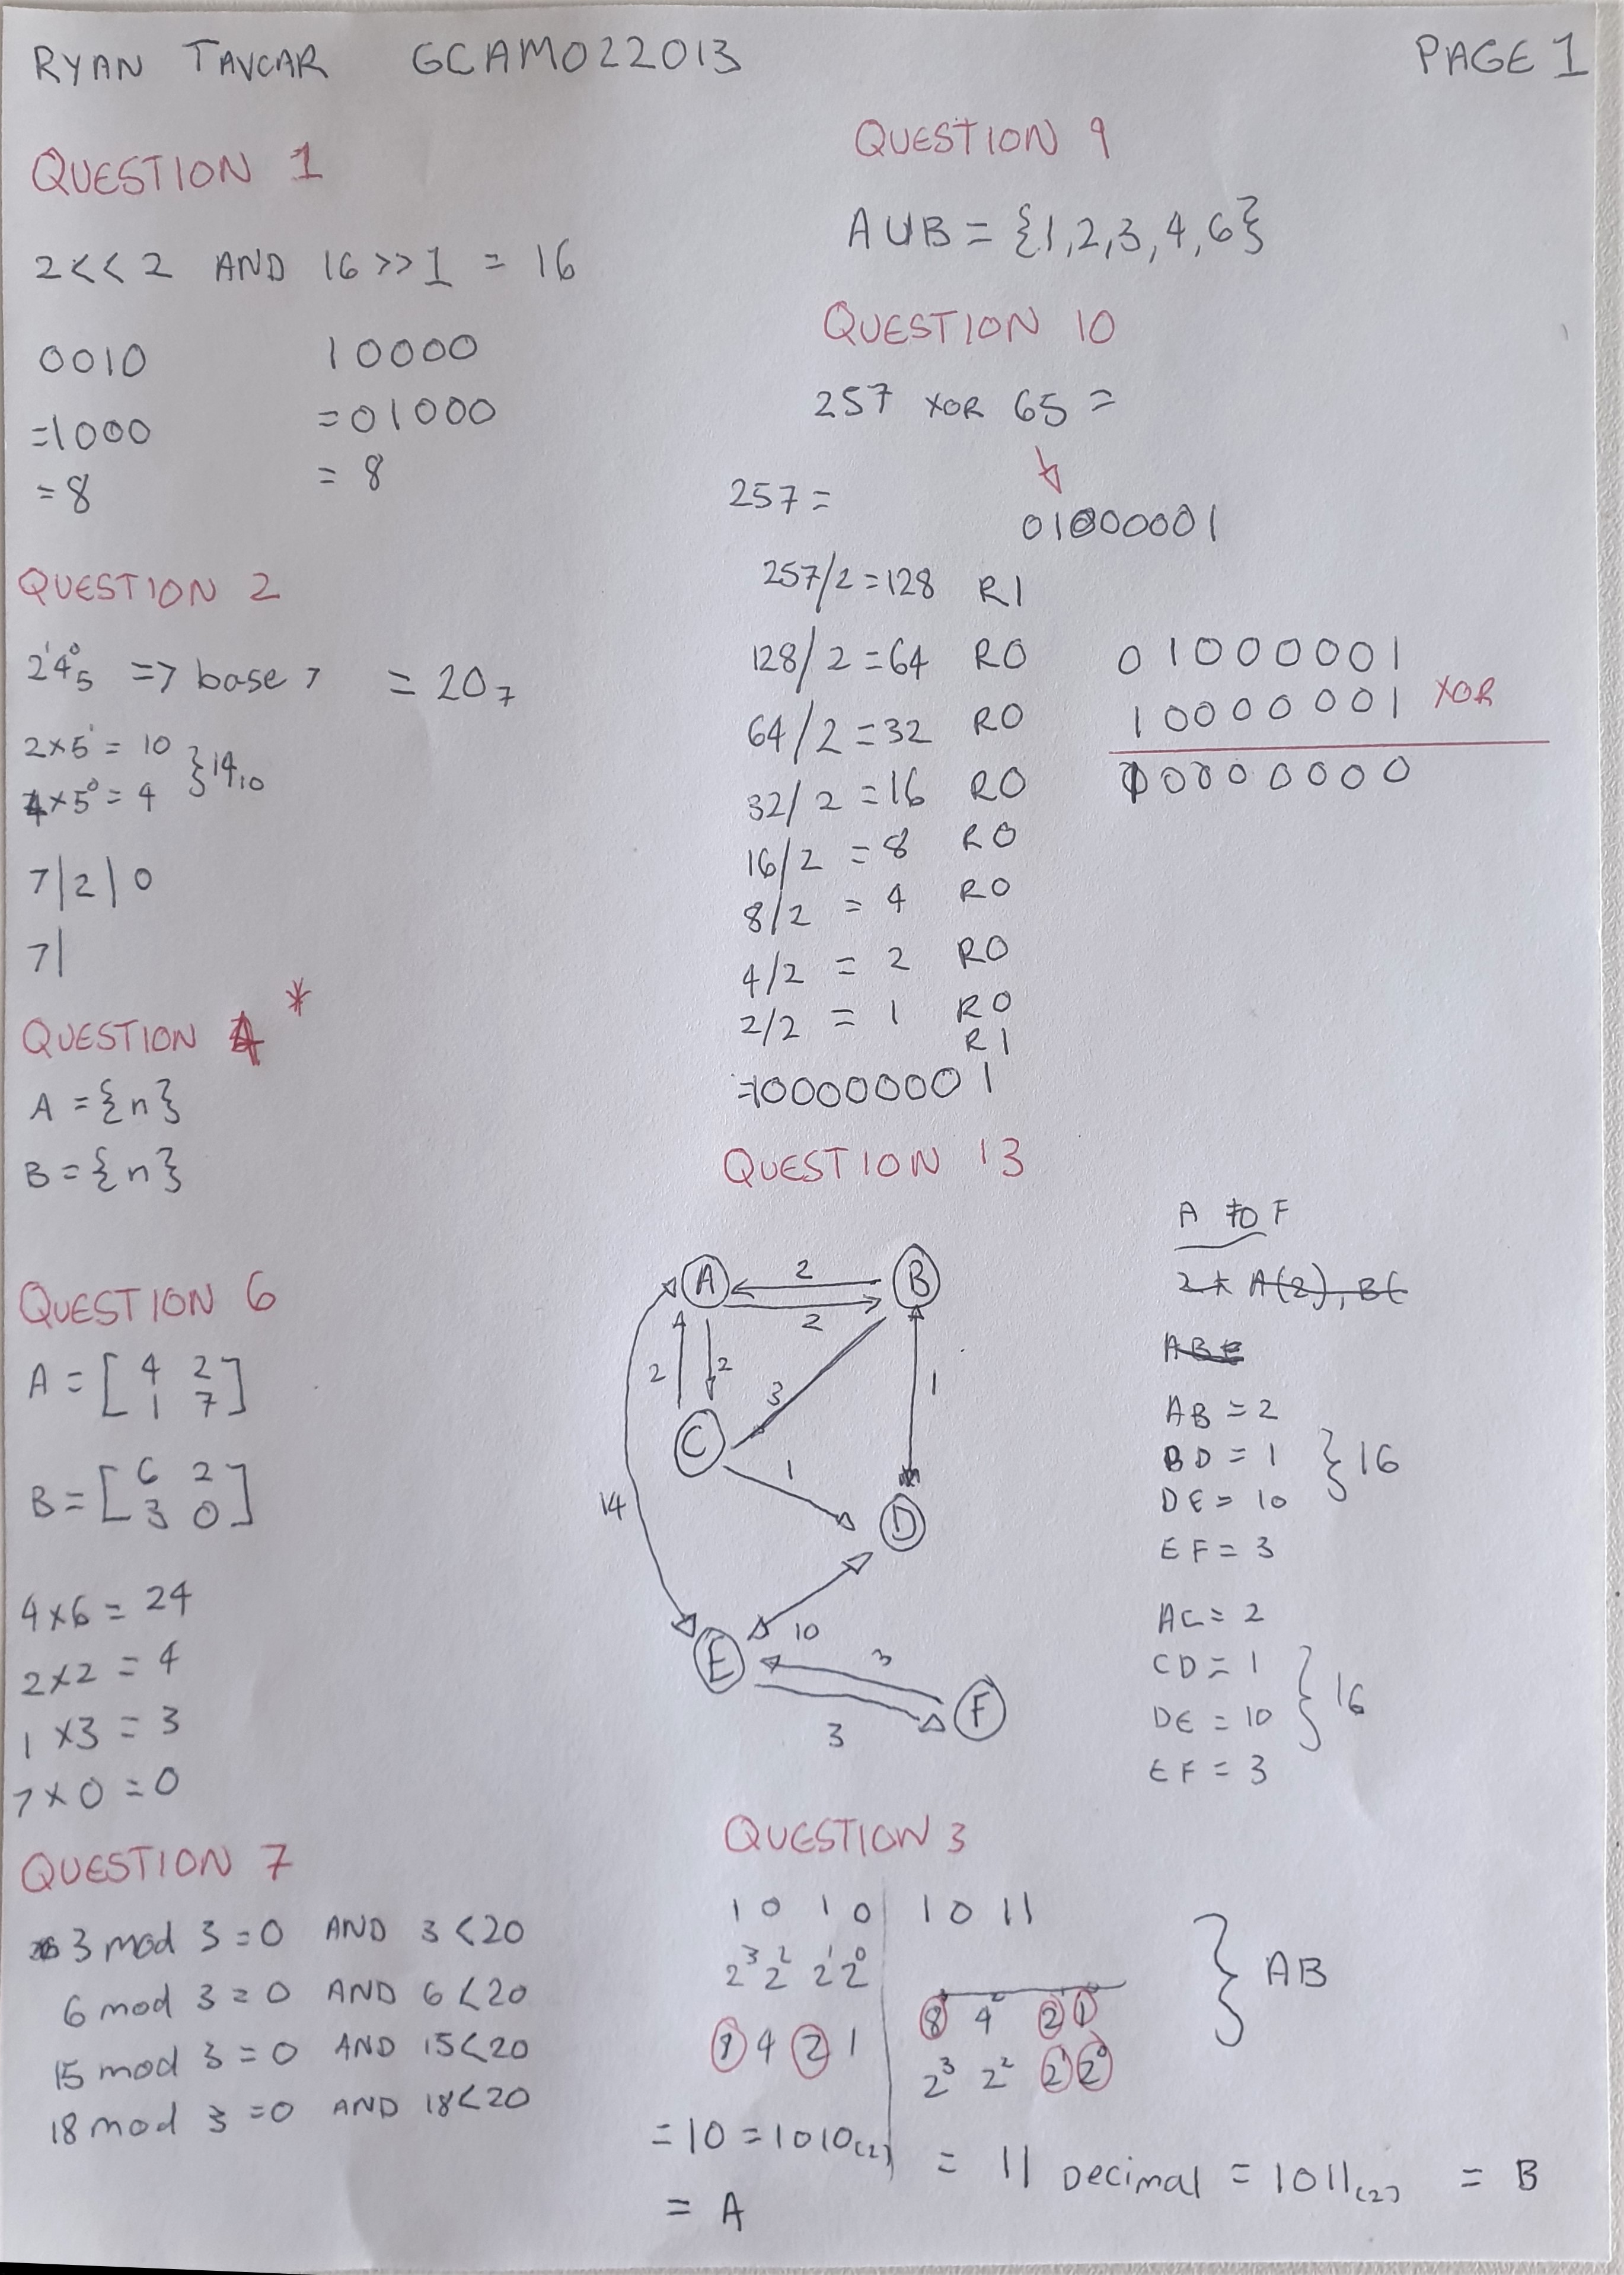 RYAN TAVCAR GCAM022013 PAGE 1
QUESTION 1
2<<2 AND 16>>1 = 16
0010 10000
=1000 =01000
=8 = 8
QUESTION 2
2¹4⁰₅ => base 7 = 20₇
2×5¹ = 10 } 14₁₀
4×5⁰ = 4
7|2|0
7|
QUESTION 4 *
A = {n}
B = {n}
QUESTION 6
A = [ 4 2
1 7 ]
B = [ 6 2
3 0 ]
4×6 = 24
2×2 = 4
1×3 = 3
7×0 = 0
QUESTION 7
3 mod 3 = 0 AND 3<20
6 mod 3 = 0 AND 6<20
15 mod 3 = 0 AND 15<20
18 mod 3 = 0 AND 18<20
QUESTION 9
A∪B = {1,2,3,4,6}
QUESTION 10
257 XOR 65 =
257 =
01000001
257/2 = 128 R1
128/2 = 64 R0
64/2 = 32 R0
32/2 = 16 R0
16/2 = 8 R0
8/2 = 4 R0
4/2 = 2 R0
2/2 = 1 R0
R1
=100000001
01000001
10000001 XOR
10000000
QUESTION 13
A 2 B
2
2 2
3
1
C
1
14
D
10
E 3
F
3
A TO F
2 A(2), B(
AB
AB = 2
BD = 1 } 16
DE = 10
EF = 3
AC = 2
CD = 1
DE = 10 } 16
EF = 3
QUESTION 3
1010 1011
2³ 2² 2¹ 2⁰ } AB
8 4 2 1
4 2 1
2³ 2² 2¹ 2⁰
= 10 = 1010₍₂₎
= A
= 11 Decimal = 1011₍₂₎ = B